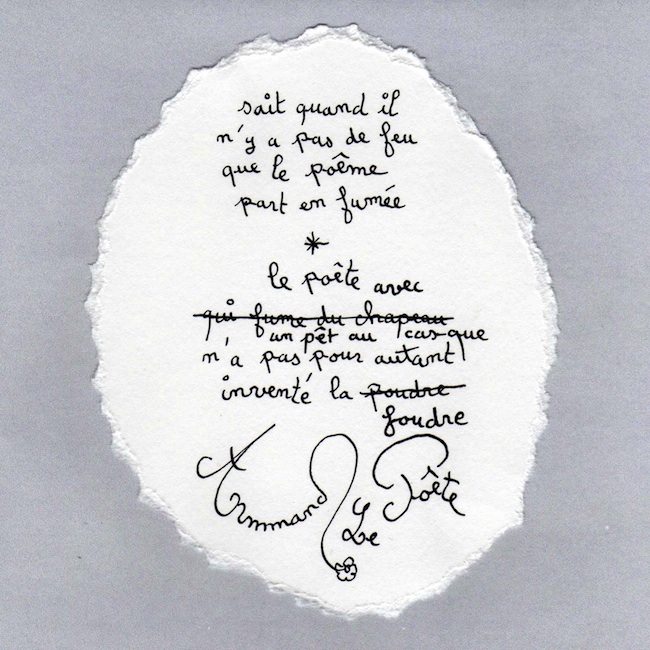 sait quand il
n'y a pas de feu
que le poême
part en fumée
*
le poête avec
qui fume du chapeau
un pêt au casque
n'a pas pour autant
inventé la poudre
foudre
Armand Le Poête